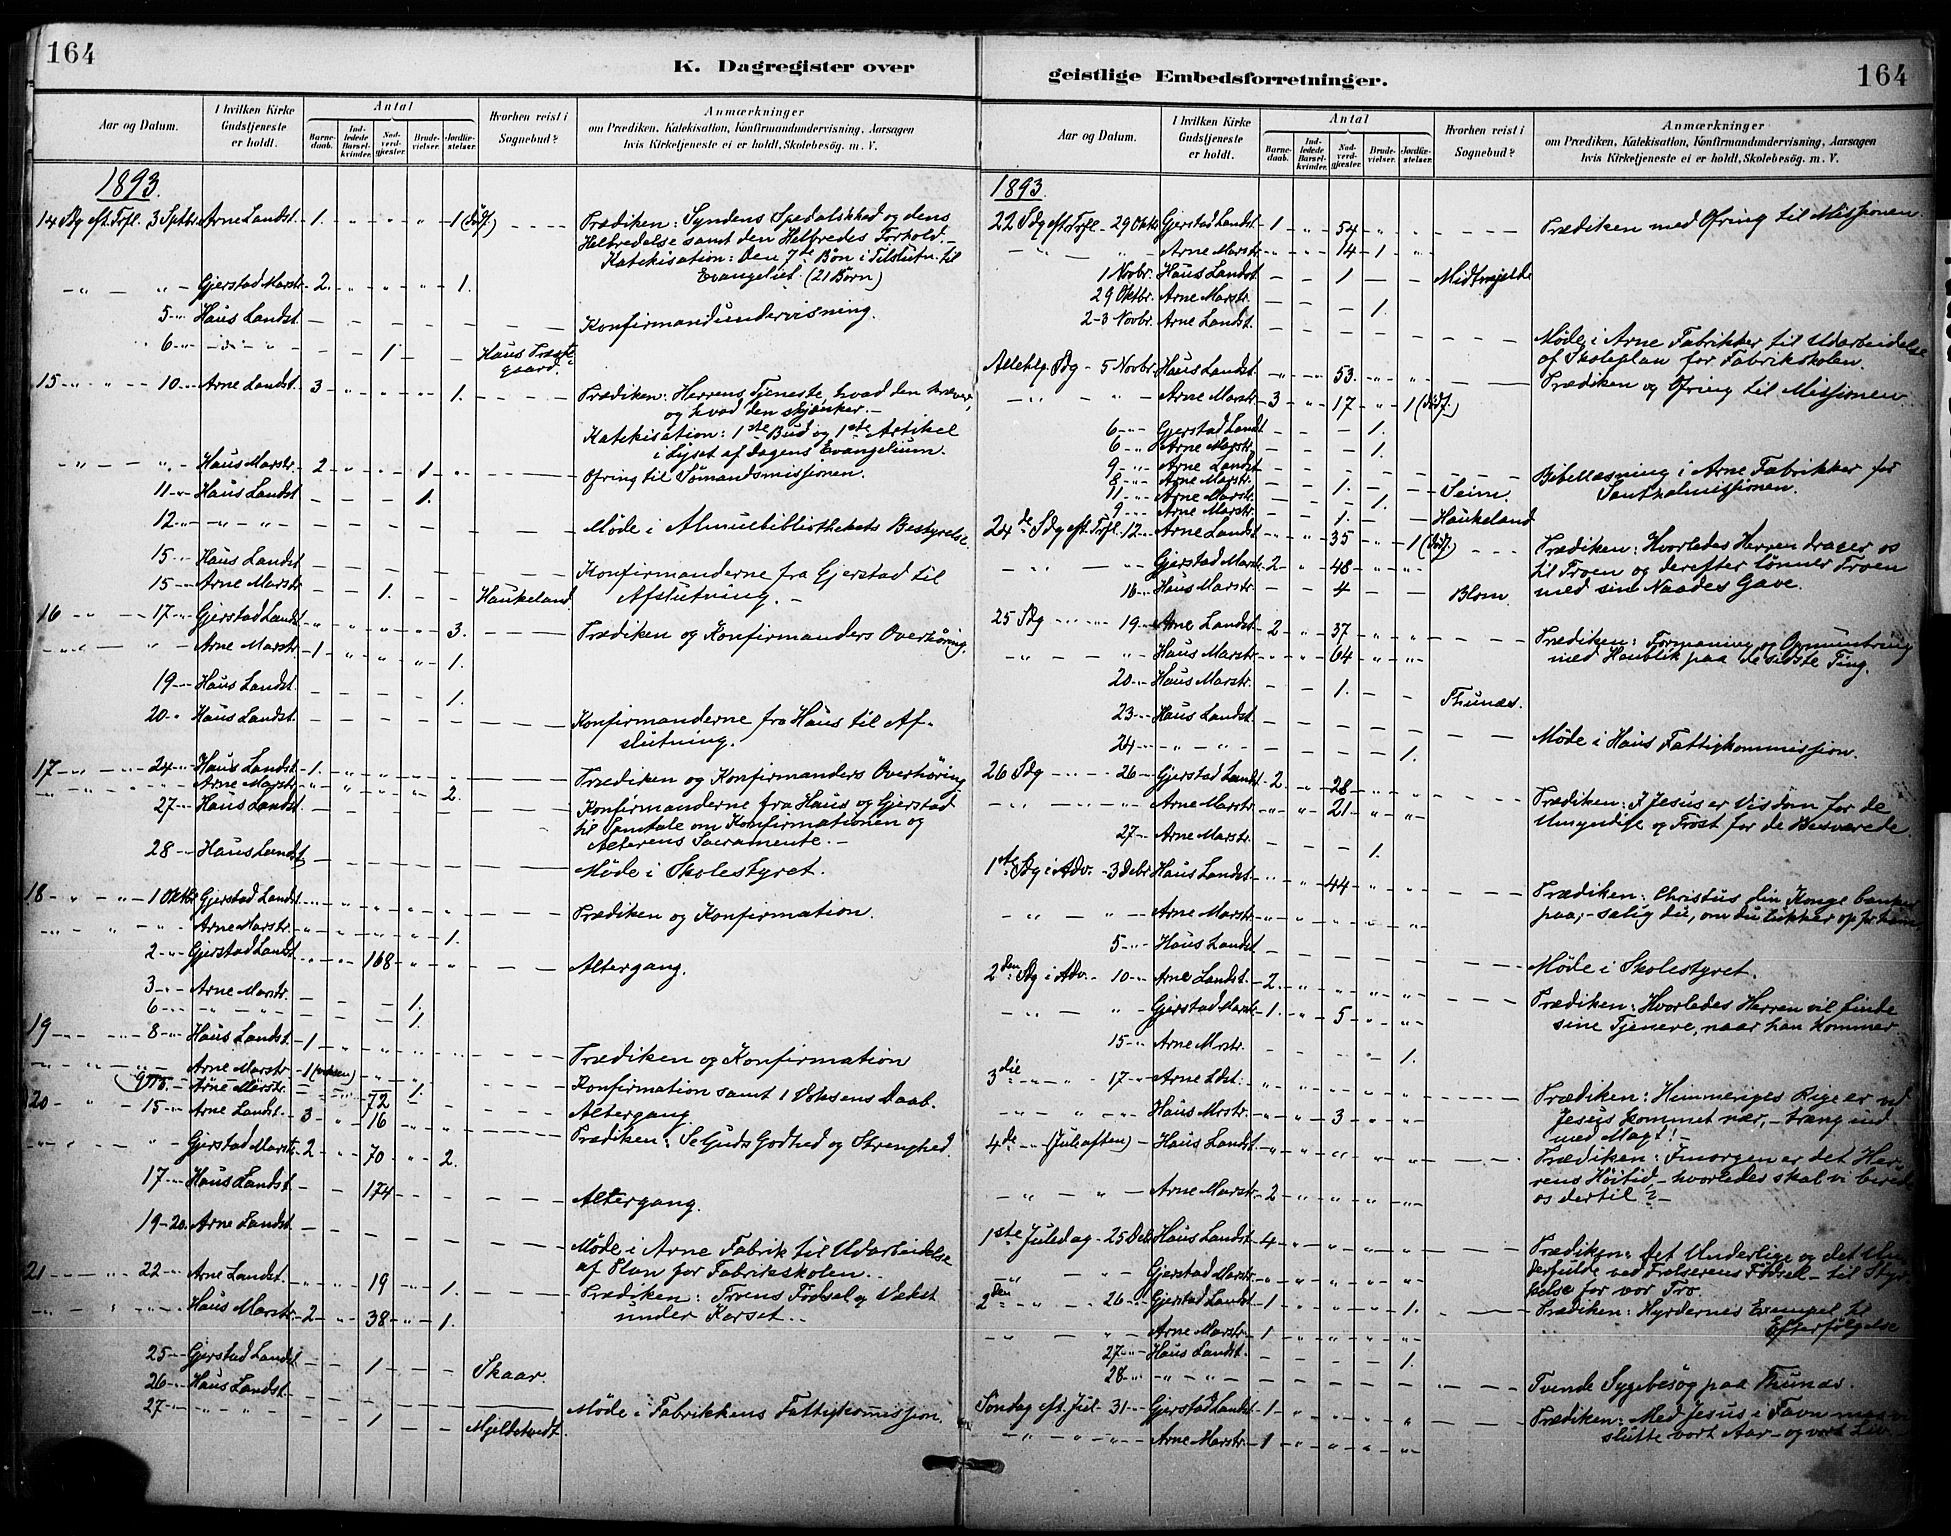 164
K. Dagregister over
Aar og Datum.
I hvilken Kirke Gudstjeneste er holdt.
Antal
Barnedaab.
Indledede Barselkvinder.
Nadverdgjæster.
Brudevielser.
Jordfæstelser.
Hvorhen reist i Sognebud?
Anmærkninger
om Prædiken, Katekisation, Konfirmandundervisning, Aarsagen
hvis Kirketjeneste ei er holdt, Skolebesøg. m. V.
1893.
14 Sdg eft. Trfl. 3 Sptbr. Arne Landst. 1. " " " 1 (Dødf.) Prædiken: Syndens Spedalskhed og dens
Helbredelse samt den Helbredes Forhold. –
Katekisation: Den 7de Bøn i Tilslutn. til
Evangeliet. (21 Børn)
" – " Gjerstad Marstr. 2. " " " 1.
5 " Haus Landst. – – – – – Konfirmandundervisning.
6 " – do – – – 1 – – Haus Præstegaard.
15 " " 10 " Arne Landst. 3 " " " 1. Prædiken: Herrens Tjeneste, hvad den kræver
og hvad den skjænker. –
Katekisation: 1ste Bud og 1ste Artikel
i Lyset af dagens Evangelium.
" – " Haus Marstr. 2 " " 1. " Ofring til Sømandsmissjonen.
11 " Haus Landst. – – – 1.
12 " – " – – – – – – Møde i Almuebibliothekets Bestyrelse.
15 " Haus Landst. – – – – – Konfirmanderne fra Gjerstad til
Afslutning. –
15 " Arne Marstr. – – 1. – – Haukeland
16 " 17 " Gjerstad Landst. " " " " 3. Prædiken og Konfirmanders Overhøring.
" – " Arne Marstr. 1 " " " 1.
19 " Haus Landst. – – – – 1.
20 " Haus Landst. – – – – – Konfirmanderne fra Haus til Afslutning.
17 " 24 " Haus Landst. 1. " " " " Prædiken og Konfirmanders Overhøring
" " Arne Marstr. " " " " 2.
27 " Haus Landst. – – – – – Konfirmanderne fra Haus og Gjerstad
til Samtale om Konfirmationen og
Alterens Sacramente. –
28 " Haus Landst – – – – – Møde i Skolestyret.
18 " 1 Oktbr. Gjerstad Landst. " " " " " Prædiken og Konfirmation.
" " Arne Marstr. " " " " 1.
2 " Gjerstad Landst. " " 168 " " Altergang.
3 " Arne Marstr. – – – 1.
6 " – " – – – – 1.
19 " 8 " Haus Landst. 1 " " " " Prædiken og Konfirmation
" " Arne Marstr. 1 (voksen) " " " Konfirmation samt 1 Voksens Daab.
9 " Arne Marstr. – – 72 1. – Altergang
20 " 15 " Arne Landst. 3 " 16 " " Prædiken: Se Guds Godhed og Strenghed.
" " Gjerstad Marstr. 2 " 70 " 2.
17 " Haus Landst. – – 174 – – Altergang.
19-20. Arne Landst. – – – – – Møde i Arne Fabrik til Udarbeidelse
af Plan for Fabrikskolen.
21 " 22 " Arne Landst. " " 19 " 1. Prædiken: Troens Fødsel og Vækst
under Korset.
" " Haus Marstr. 2 " 38 " 1.
25 " Gjerstad Landst. – – 1 – – Skaar.
26 " Haus Landst. – – – – – Møde i Fabrikkens Fattigkommissjon.
27 " " " – – 1 – – Mjeldstvedt.
164
geistlige Embedsforretninger.
Aar og Datum.
I hvilken Kirke Gudstjeneste er holdt.
Antal
Barnedaab.
Indledede Barselkvinder.
Nadverdgjæster.
Brudevielser.
Jordfæstelser.
Hvorhen reist i Sognebud?
Anmærkninger
om Prædiken, Katekisation, Konfirmandundervisning, Aarsagen
hvis Kirketjeneste ei er holdt, Skolebesøg. m. V.
1893.
22 Sdg eft. Trfl. 29 Oktbr. Gjerstad Landst. 1 " 54 " " Prædiken med Ofring til Missjonen.
" " Arne Marstr. " " 14 1 "
1 Novbr. Haus Landst. – – 1 – – Midtmjelde
29 Oktbr. Arne Marstr. – – – 1.
2-3 Novbr. Arne Landst. – – – – – Møde i Arne Fabrikker til Udarbeidelse
af Skoleplan for Fabrikskolen.
Allehlg. Sdg 5 Novbr. Haus Landst. " " 53. " " Prædiken og Ofring til Missjonen.
" " Arne Marstr. 3 " 17 " 1 (Dødf.)
6 " Gjerstad Landst – – – 1.
6 " Arne Marstr. – – – 1.
9 " Arne Landst. – – – – – Bibellæsning i Arne Fabrikker for
Santhalmissjonen.
8 " Arne Marstr. – – 1. – – Seim.
11 " Arne Marstr. – – – 1.
9 " Arne Marstr. – – 1. – – Haukeland
24de Sdg eft. Trfl. 12 " Arne Landst. " " 35 " 1 (Dødf.) Prædiken: Hvorledes Herren drager os
til Troen og derefter lønner Troen
med sin Naades Gave.
" " Gjerstad Marst. 2 " 48 " "
16 " Haus Marstr. – – 4 – – Blom.
25 Sdg " 19 " Arne Landst. 2 " 37 " " Prædiken: Formaning og Opmuntring
med Henblik paa de sidste Ting.
" " Haus Marstr. " " 64 " "
20 " Haus Marstr. – – 1. – – Thunæs.
23 " Haus Landst. – – – – – Møde i Haus Fattigkommissjon.
24 " " " – – – – 1.
26 Sdg " 26 " Gjerstad Landst. 2. " 28 " " Prædiken: I Jesus er Visdom for de
Umyndige og Trøst for de Besværede.
" " Arne Marstr. " " 21 " "
27 " Arne Marstr. – – – 1.
1ste Sdg i Adv. 3 Debr. Haus Landst. " " 44 " " Prædiken: Christus din Konge banker
paa, – salig du, om du lukker op for ham.
" " Arne Marstr. " " " " "
5 " Haus Landst – – – – – Møde i Skolestyret.
2den Sdg i Adv. 10 " Arne Landst. 2. " " " " Prædiken: Hvorledes Herren vil finde
sine Tjenere, naar han kommer
" " Gjerstad Marstr. 1. " 5 " "
15 " Arne Mrstr. – – – – 1.
3die " 17 " Arne Ldst. " " " " " Prædiken: Himmeriges Rige er ved
Jesus kommet nær, – træng ind
med Magt! –
" " Haus Mrstr. " " 3 " "
4de " (Juleaften) Haus Landst. " " " " " Prædiken: Imorgen er det Herrens Høitid – hvorledes skal vi berede
os dertil? –
" " Arne Marstr. 2 " " " "
1ste Juledag 25 Debr. Haus Landst. 4 " " " " Prædiken: det Underlige og det Underfulde ved Frelserens Fødsel – til Styrkelse for vor Tro.
" " Gjerstad Marstr. " " " " "
2den " 26 " Gjerstad Landst. 1 " " " 1. Prædiken: Hyrdernes Exempel til
Efterfølgelse
" " Arne Marstr. 1 " " " "
27 " Haus Landst. – – – – 1.
28 " " " – – – – – Tvende Sygebesøg paa Thunæs.
Søndag eft. Jul 31 " Gjerstad Landst. 1 " " " " Prædiken: Med Jesus i Favn maa vi
slutte vort Aar – og vort Liv.
" " Arne Marstr. 1 " " " "